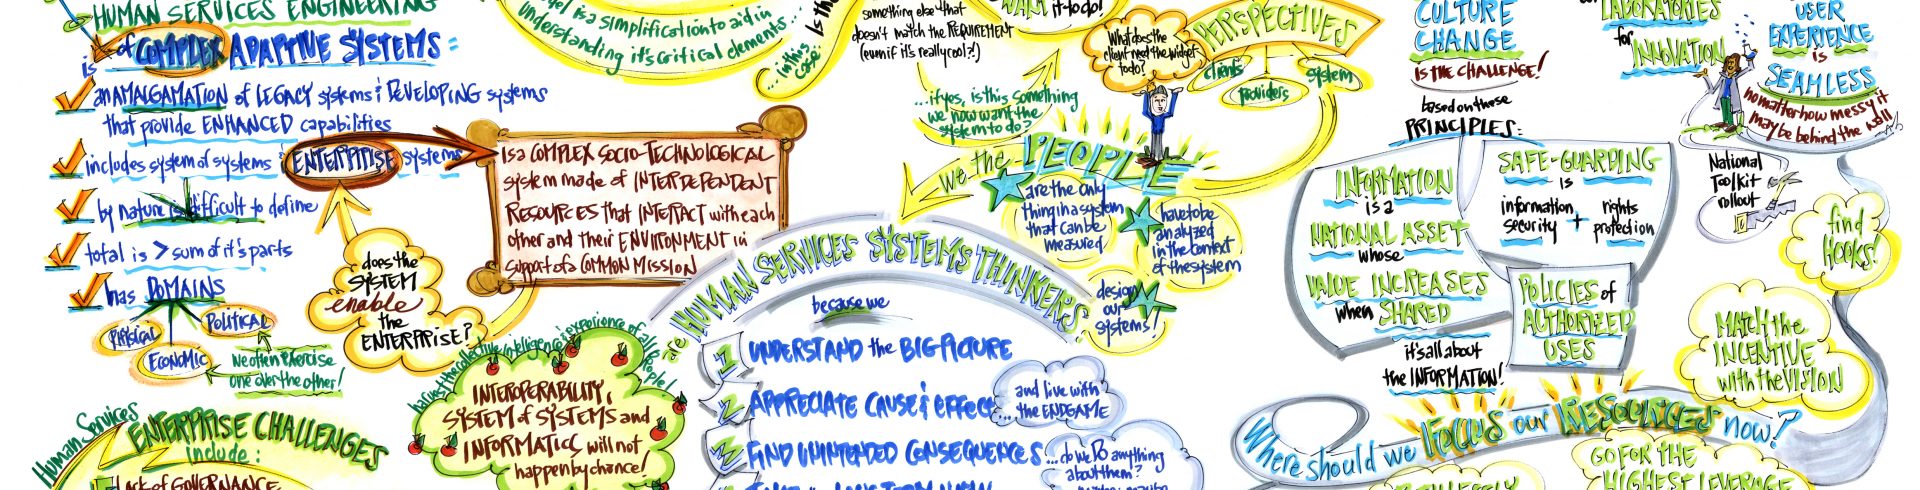 HUMAN SERVICES ENGINEERING
is of COMPLEX ADAPTIVE SYSTEMS =
an AMALGAMATION of LEGACY systems & DEVELOPING systems
that provide ENHANCED capabilities
includes system of systems & ENTERPRISE systems
by nature is difficult to define
total is > sum of it's parts
has DOMAINS
PHYSICAL
POLITICAL
ECONOMIC
we often exercise
one over the other!
Human Services
ENTERPRISE CHALLENGES
include:
Lack of GOVERNANCE
is a simplification to aid in
understanding it's critical elements...
...in this
case
is a COMPLEX SOCIO-TECHNOLOGICAL
system made of INTERDEPENDENT
RESOURCES that INTERACT with each
other and their ENVIRONMENT in
support of a COMMON MISSION
does the
SYSTEM
enable
the
ENTERPRISE?
harvest the collective intelligence & experience of all people!
INTEROPERABILITY,
SYSTEM of SYSTEMS and
INFORMATICS will not
happen by chance!
something else that
doesn't match the REQUIREMENT
(even if it's really cool?!)
WANT it to do!
...if yes, is this something
we now want the
system to do?
What does the
client need the widget
to do?
PERSPECTIVES
clients
providers
system
we the PEOPLE
are the only
thing in a system
that can be
measured
have to be
analyzed
in the context
of the system
design
our
systems!
are HUMAN SERVICES SYSTEMS THINKERS
because we
1 UNDERSTAND the BIG PICTURE
2 APPRECIATE CAUSE & EFFECT
...and live with
the ENDGAME
3 FIND UNINTENDED CONSEQUENCES
...do we DO anything
about them?
CULTURE
CHANGE
IS THE CHALLENGE!
based on these
PRINCIPLES:
INFORMATION
is a
NATIONAL ASSET
whose
VALUE INCREASES
when SHARED
it's all about
the INFORMATION!
SAFE-GUARDING
is
information
security
+
rights
protection
POLICIES of
AUTHORIZED
USES
LABORATORIES
for
INNOVATION
USER
EXPERIENCE
is
SEAMLESS
no matter how messy it
may be behind the wall
National
Toolkit
rollout
find
HOOKS!
MATCH the
INCENTIVE
with the VISION
Where should we FOCUS our RESOURCES now?
GO FOR THE
HIGHEST LEVERAGE